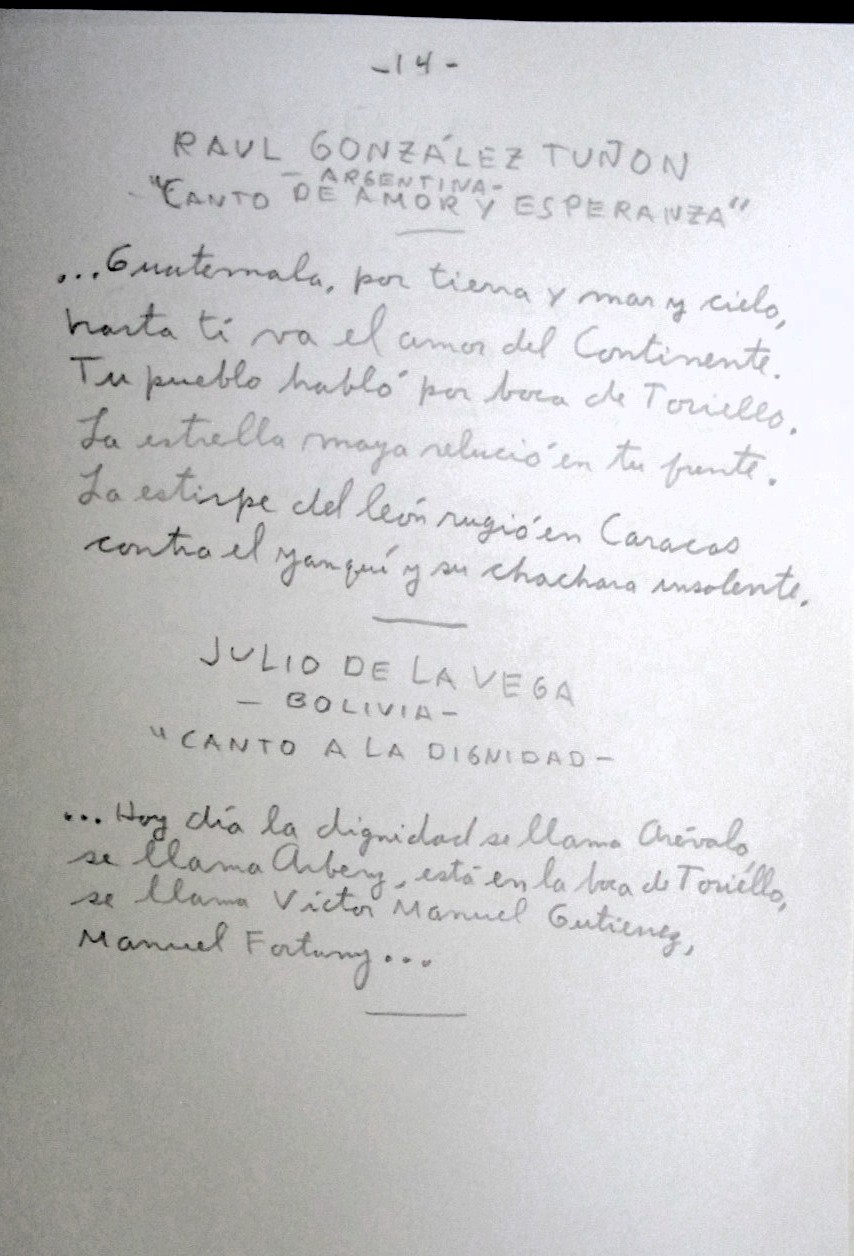 -14-
RAUL GONZÁLEZ TUÑON
- ARGENTINA-
"CANTO DE AMOR Y ESPERANZA"
...Guatemala, por tierra y mar y cielo,
hasta ti va el amor del Continente.
Tu pueblo habló por boca de Toriello.
La estrella maya relució en tu frente.
La estirpe del león rugió en Caracas
contra el yanqui y su chachara insolente.
JULIO DE LA VEGA
- BOLIVIA-
"CANTO A LA DIGNIDAD-
...Hoy día la dignidad se llama Arévalo,
se llama Arbenz, está en la boca de Toriello,
se llama Víctor Manuel Gutierrez,
Manuel Fortuny...